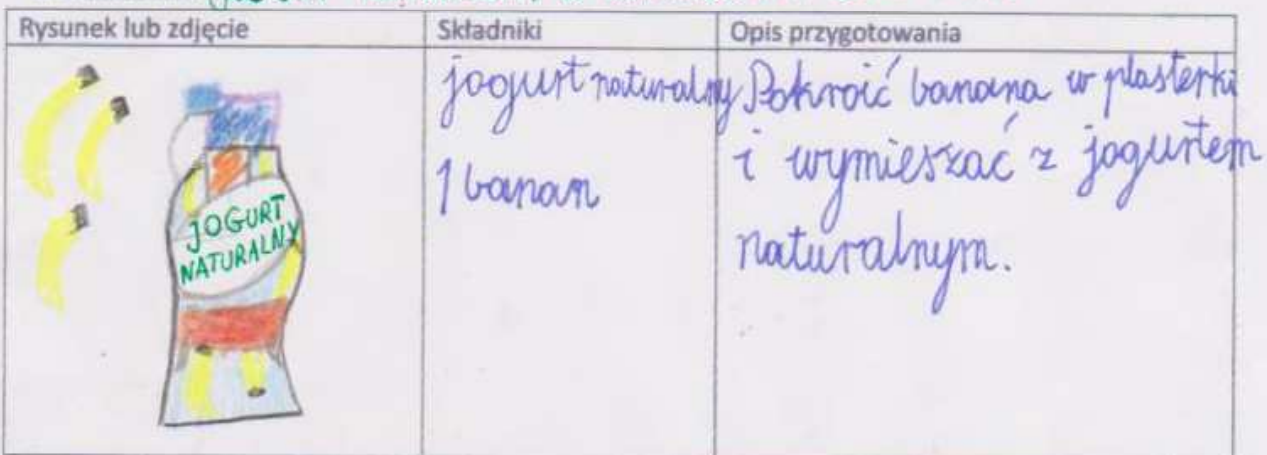 Rysunek lub zdjęcie
Składniki
Opis przygotowania
JOGURT
NATURALNY
jogurt naturalny
1 banan
Pokroić banana w plasterki
i wymieszać z jogurtem
naturalnym.